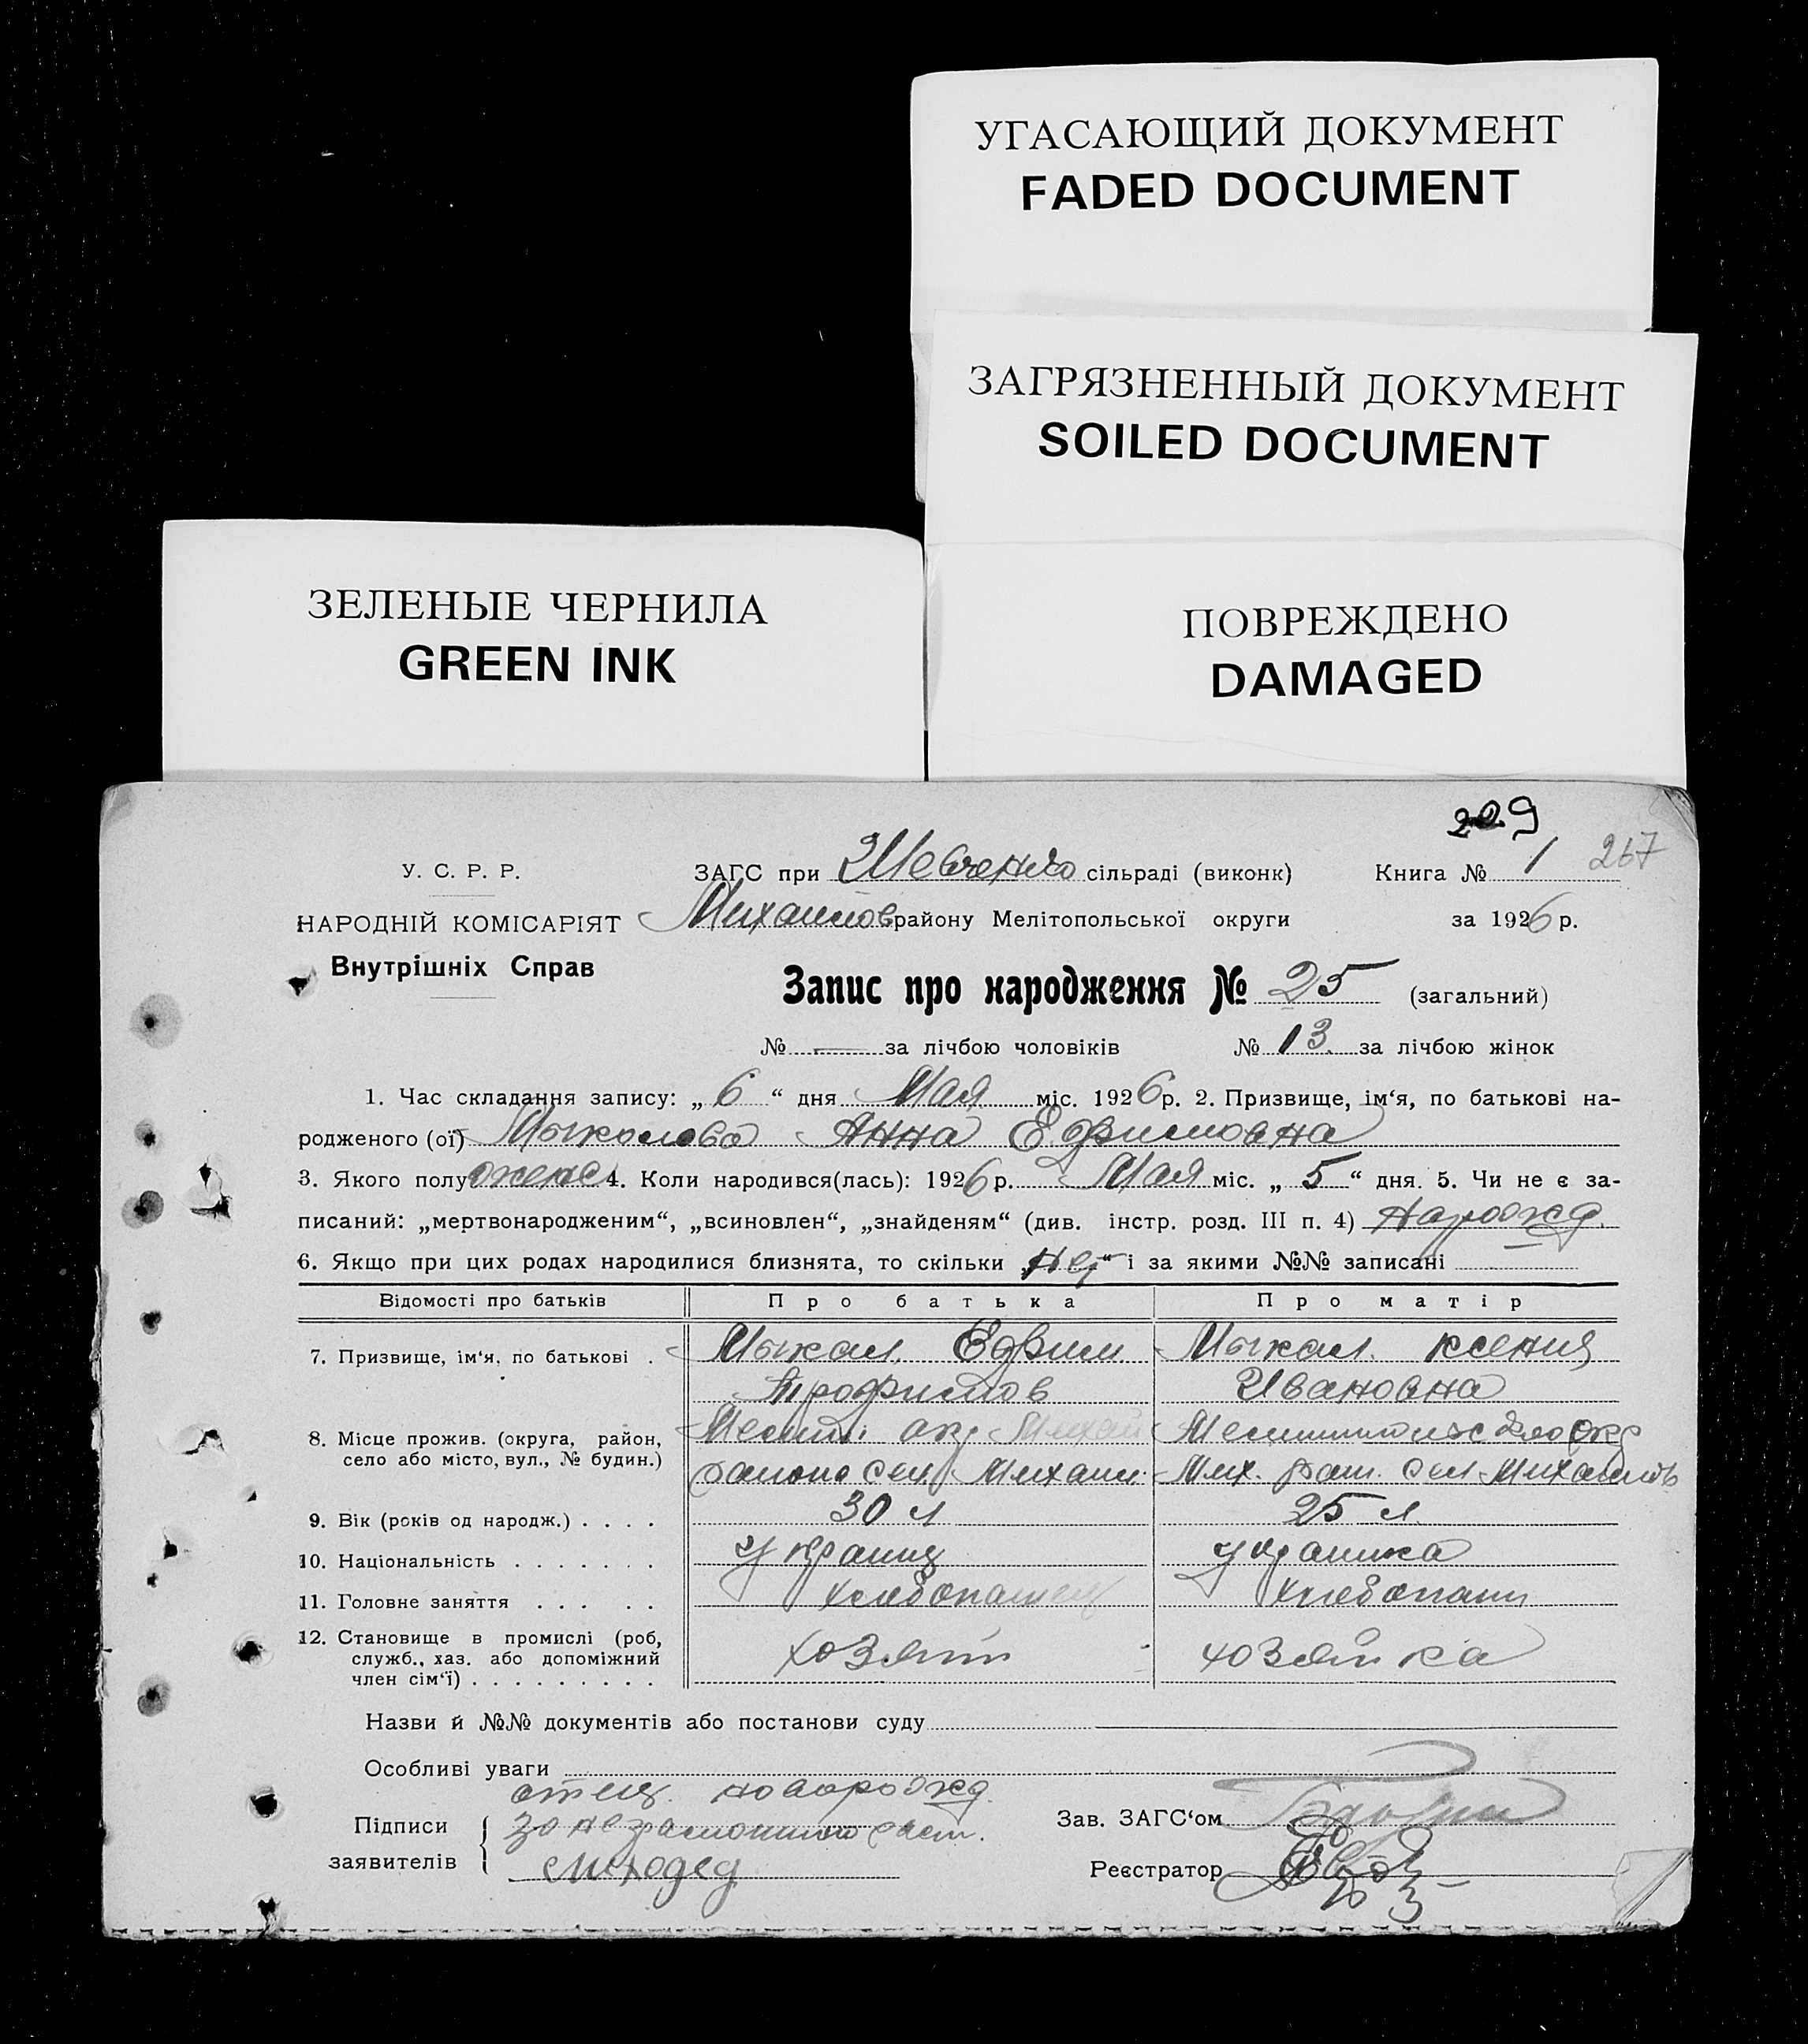 УГАСАЮЩИЙ ДОКУМЕНТ
FADED DOCUMENT
ЗАГРЯЗНЕННЫЙ ДОКУМЕНТ
SOILED DOCUMENT
ЗЕЛЕНЫЕ ЧЕРНИЛА
GREEN INK
ПОВРЕЖДЕНО
DAMAGED
209
У. С. Р. Р.
ЗАГС при Шевченко сільраді (виконк)
Книга № 1 267
НАРОДНІЙ КОМІСАРІЯТ
Михайлов району Мелітопольської округи
за 1926 р.
Внутрішніх Справ
Запис про народження № 25 (загальний)
№ — за лічбою чоловіків № 13 за лічбою жінок
1. Час складання запису: „ 6 “ дня Мая міс. 1926 р. 2. Призвище, ім‘я, по батькові на-
родженого (ої) Анна Ефимовна
3. Якого полу женс 4. Коли народився(лась): 1926 р. Мая міс. „ 5 “ дня. 5. Чи не є за-
писаний: „мертвонародженим“, „всиновлен“, „знайденям“ (див. інстр. розд. III п. 4) Нарожд.
6. Якщо при цих родах народилися близнята, то скільки „нет“ і за якими №№ записані
Відомості про батьків Про батька Про матір
7. Призвище, ім‘я, по батькові . Мыкал. Ефим Мыкал. Ксения
Трофимов Ивановна
8. Місце прожив. (округа, район, Мелит. окр Михай
село або місто, вул., № будин.) района сел. Михайл. Мих. рай. сел Михайлов
9. Вік (років од народж.) . . . . 30 л 25 л.
10. Національність . . . . . . . Украинц Украинка
11. Головне заняття . . . . . хлебопашец хлебопаш
12. Становище в промислі (роб, хозяин хозяйка
служб., хаз. або допоміжний
член сім‘ї) . . . . . . . . .
Назви й №№ документів або постанови суду
Особливі уваги
отец новорожд.
Підписи
заявителів
Зав. ЗАГС‘ом
Реєстратор